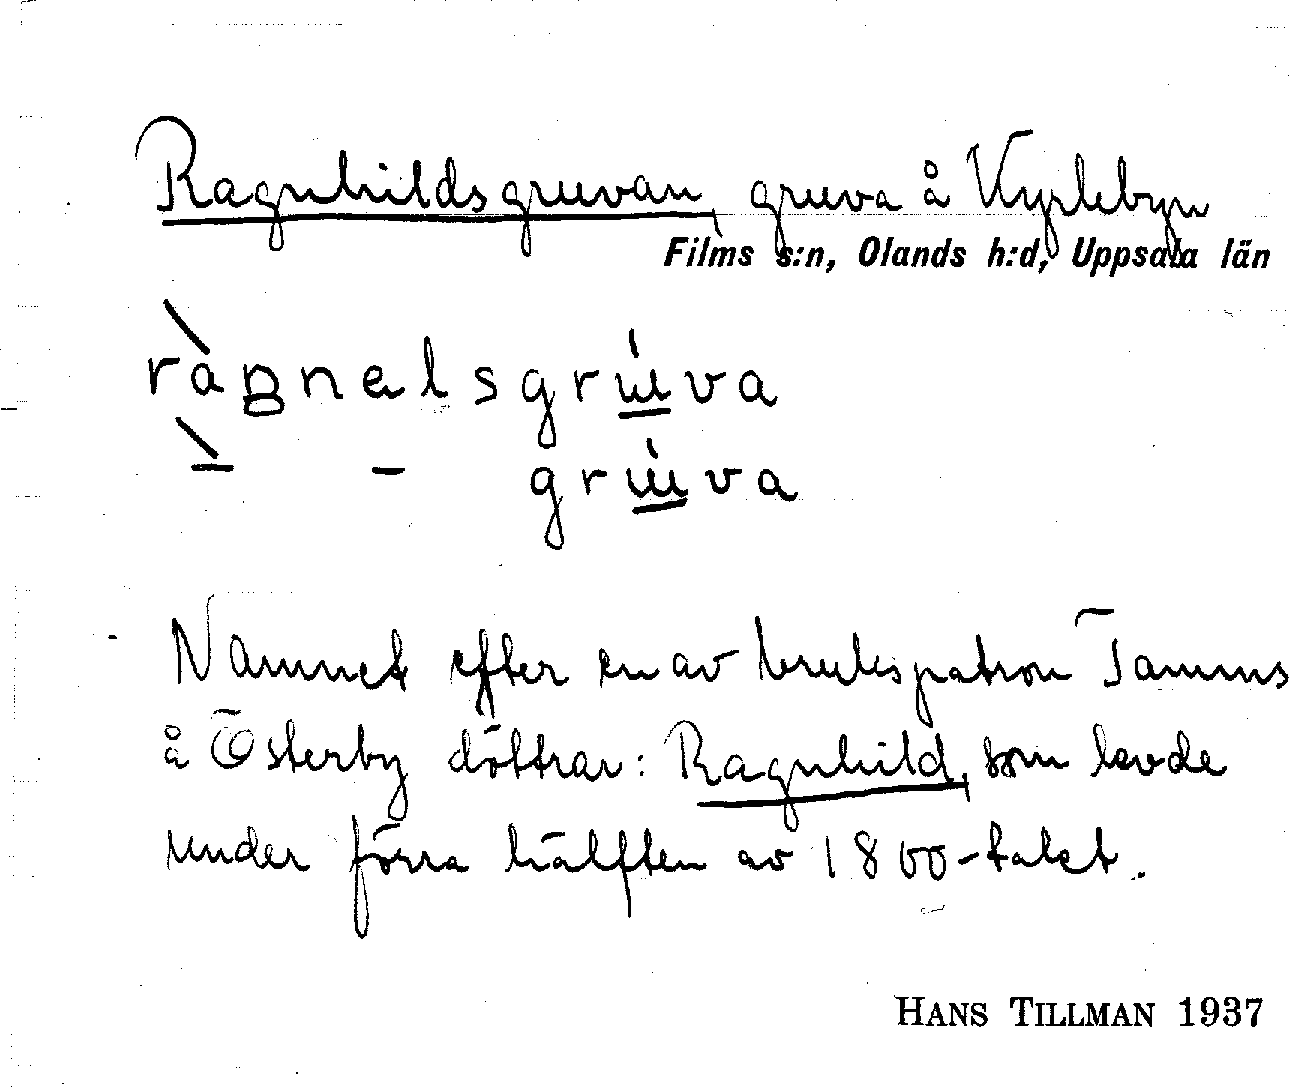 Ragnhildsgruvan, gruva å Kyrlebyn
Films s:n, Olands h:d, Uppsala län
grùva
Namnet efter en av brukspatron Tamms
å Österby döttrar: Ragnhild, som levde
under förra hälften av 1800-talet.
HANS TILLMAN 1937